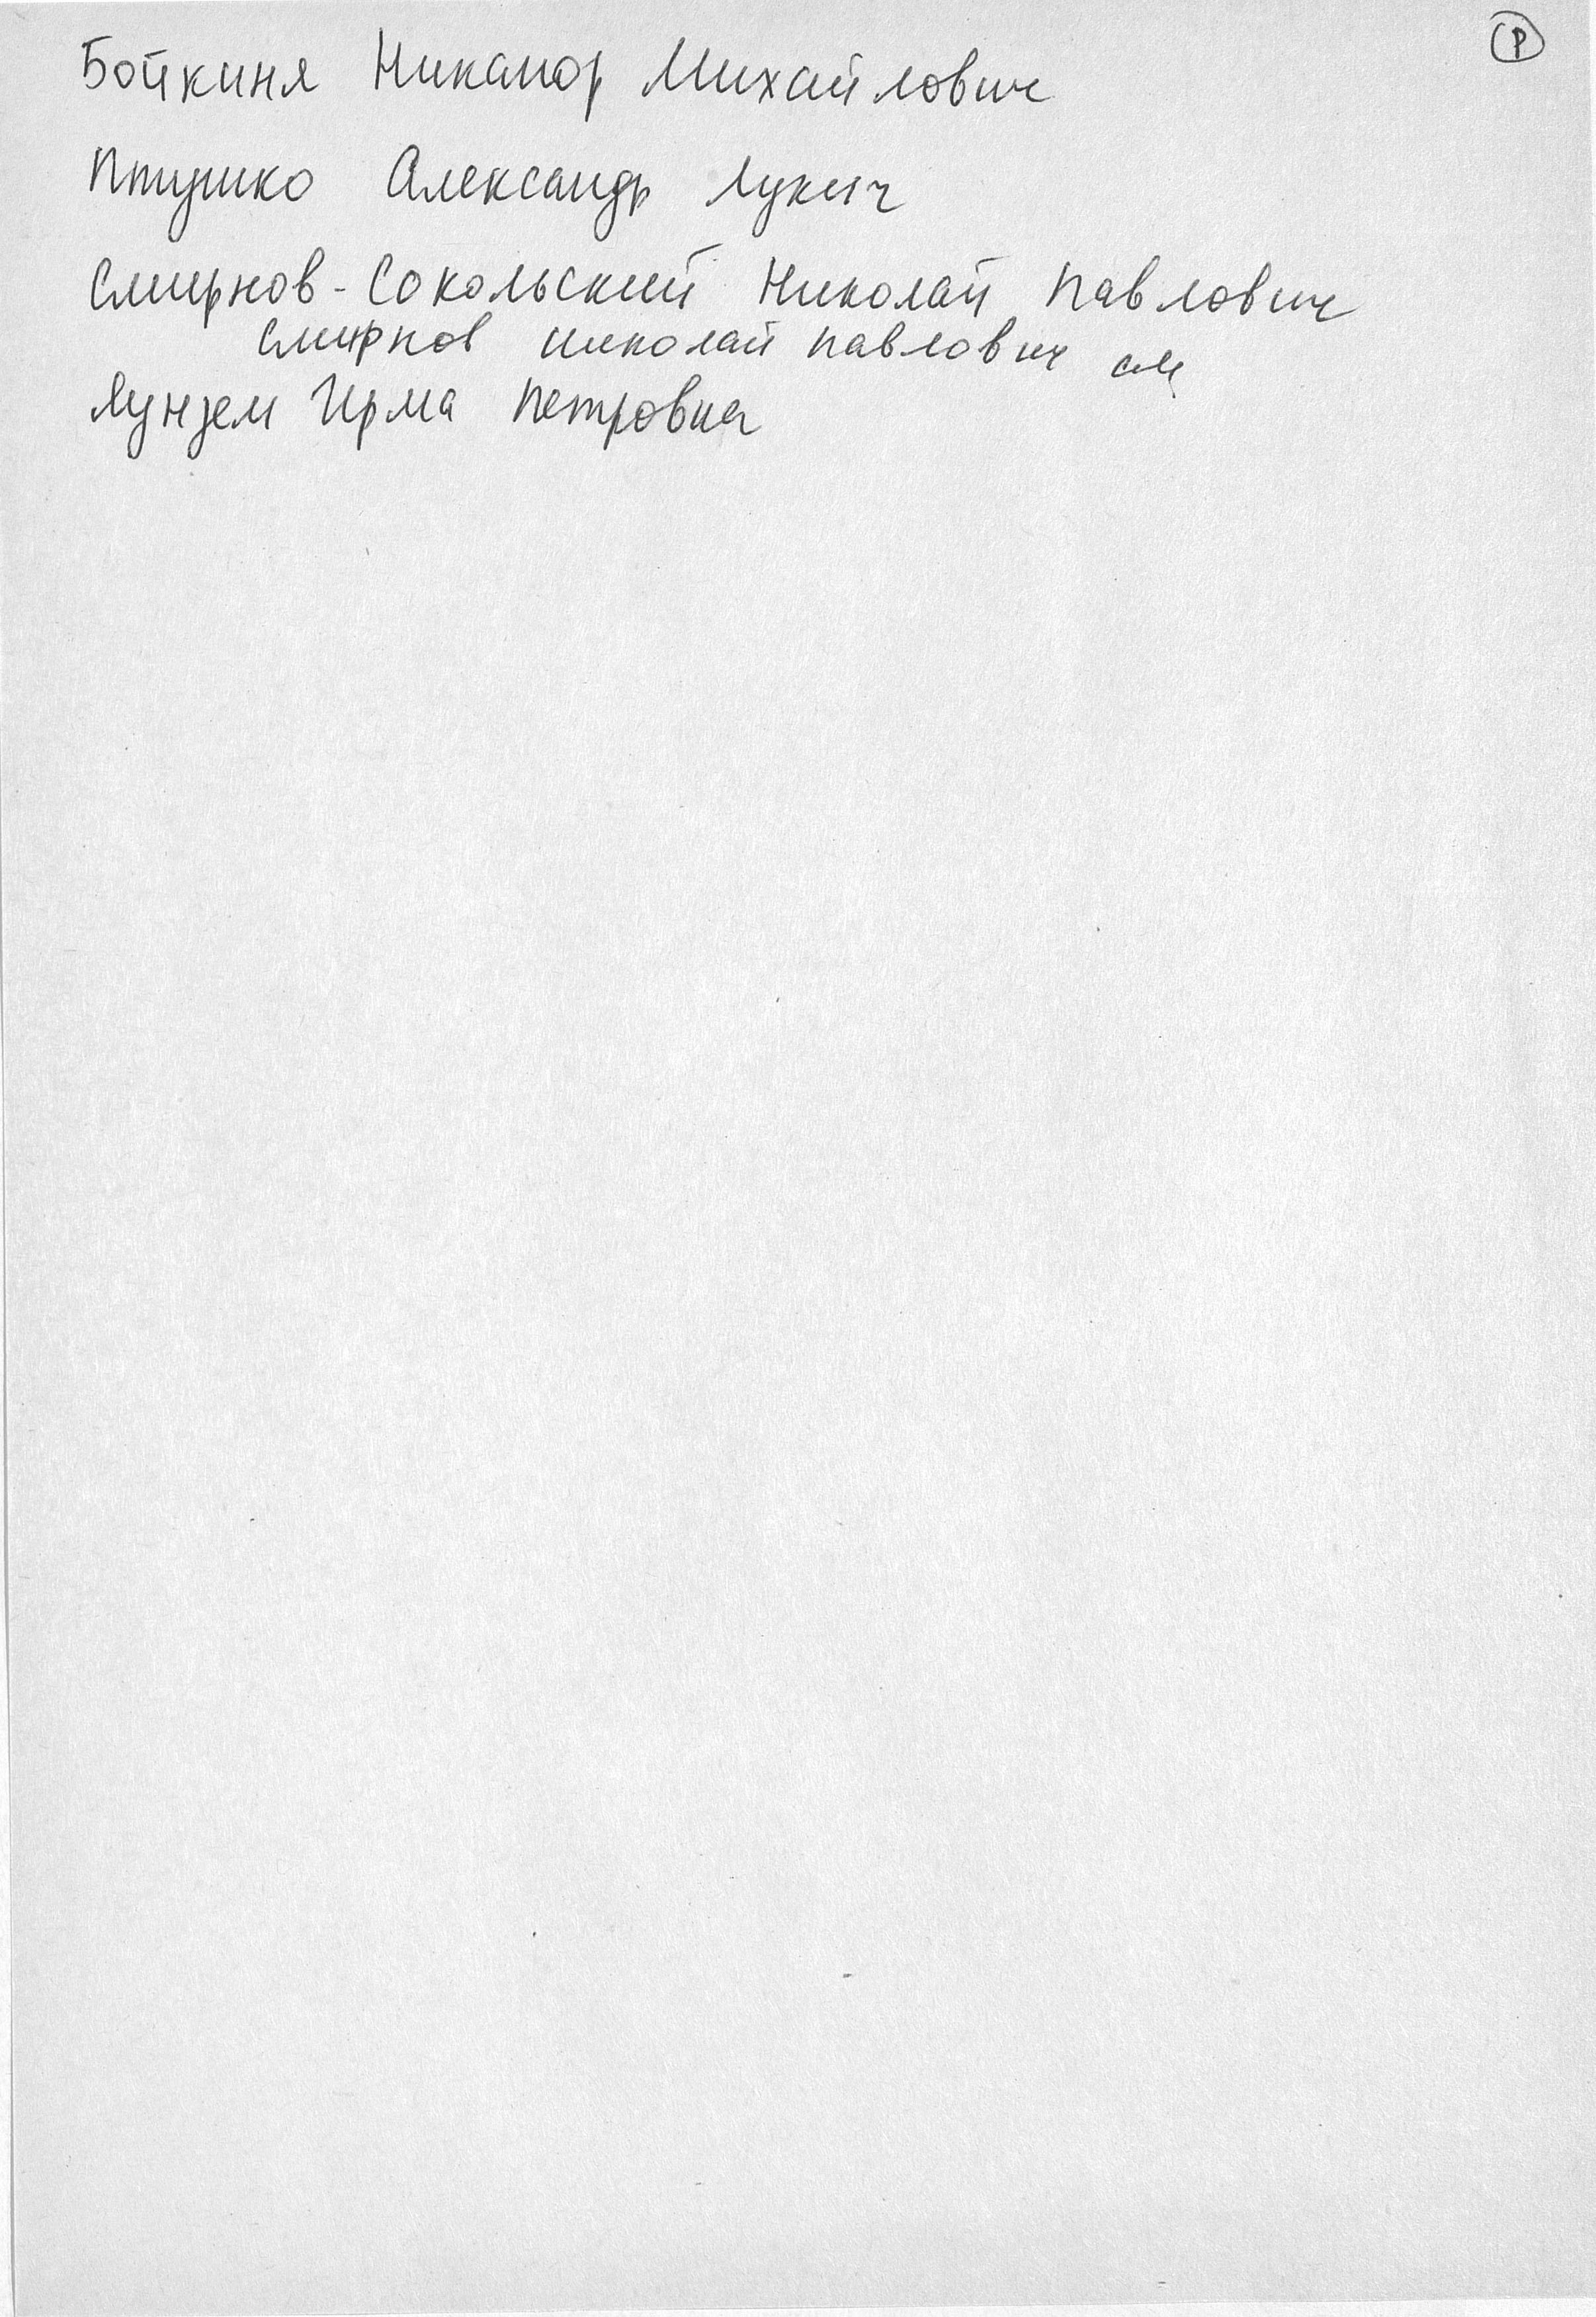 Р
Бойкиня Никанор Михайлович
Птушко Александр Лукич
Смирнов-Сокольский Николай Павлович
Смирнов Николай Павлович см
Лунзем Ирма Петровна